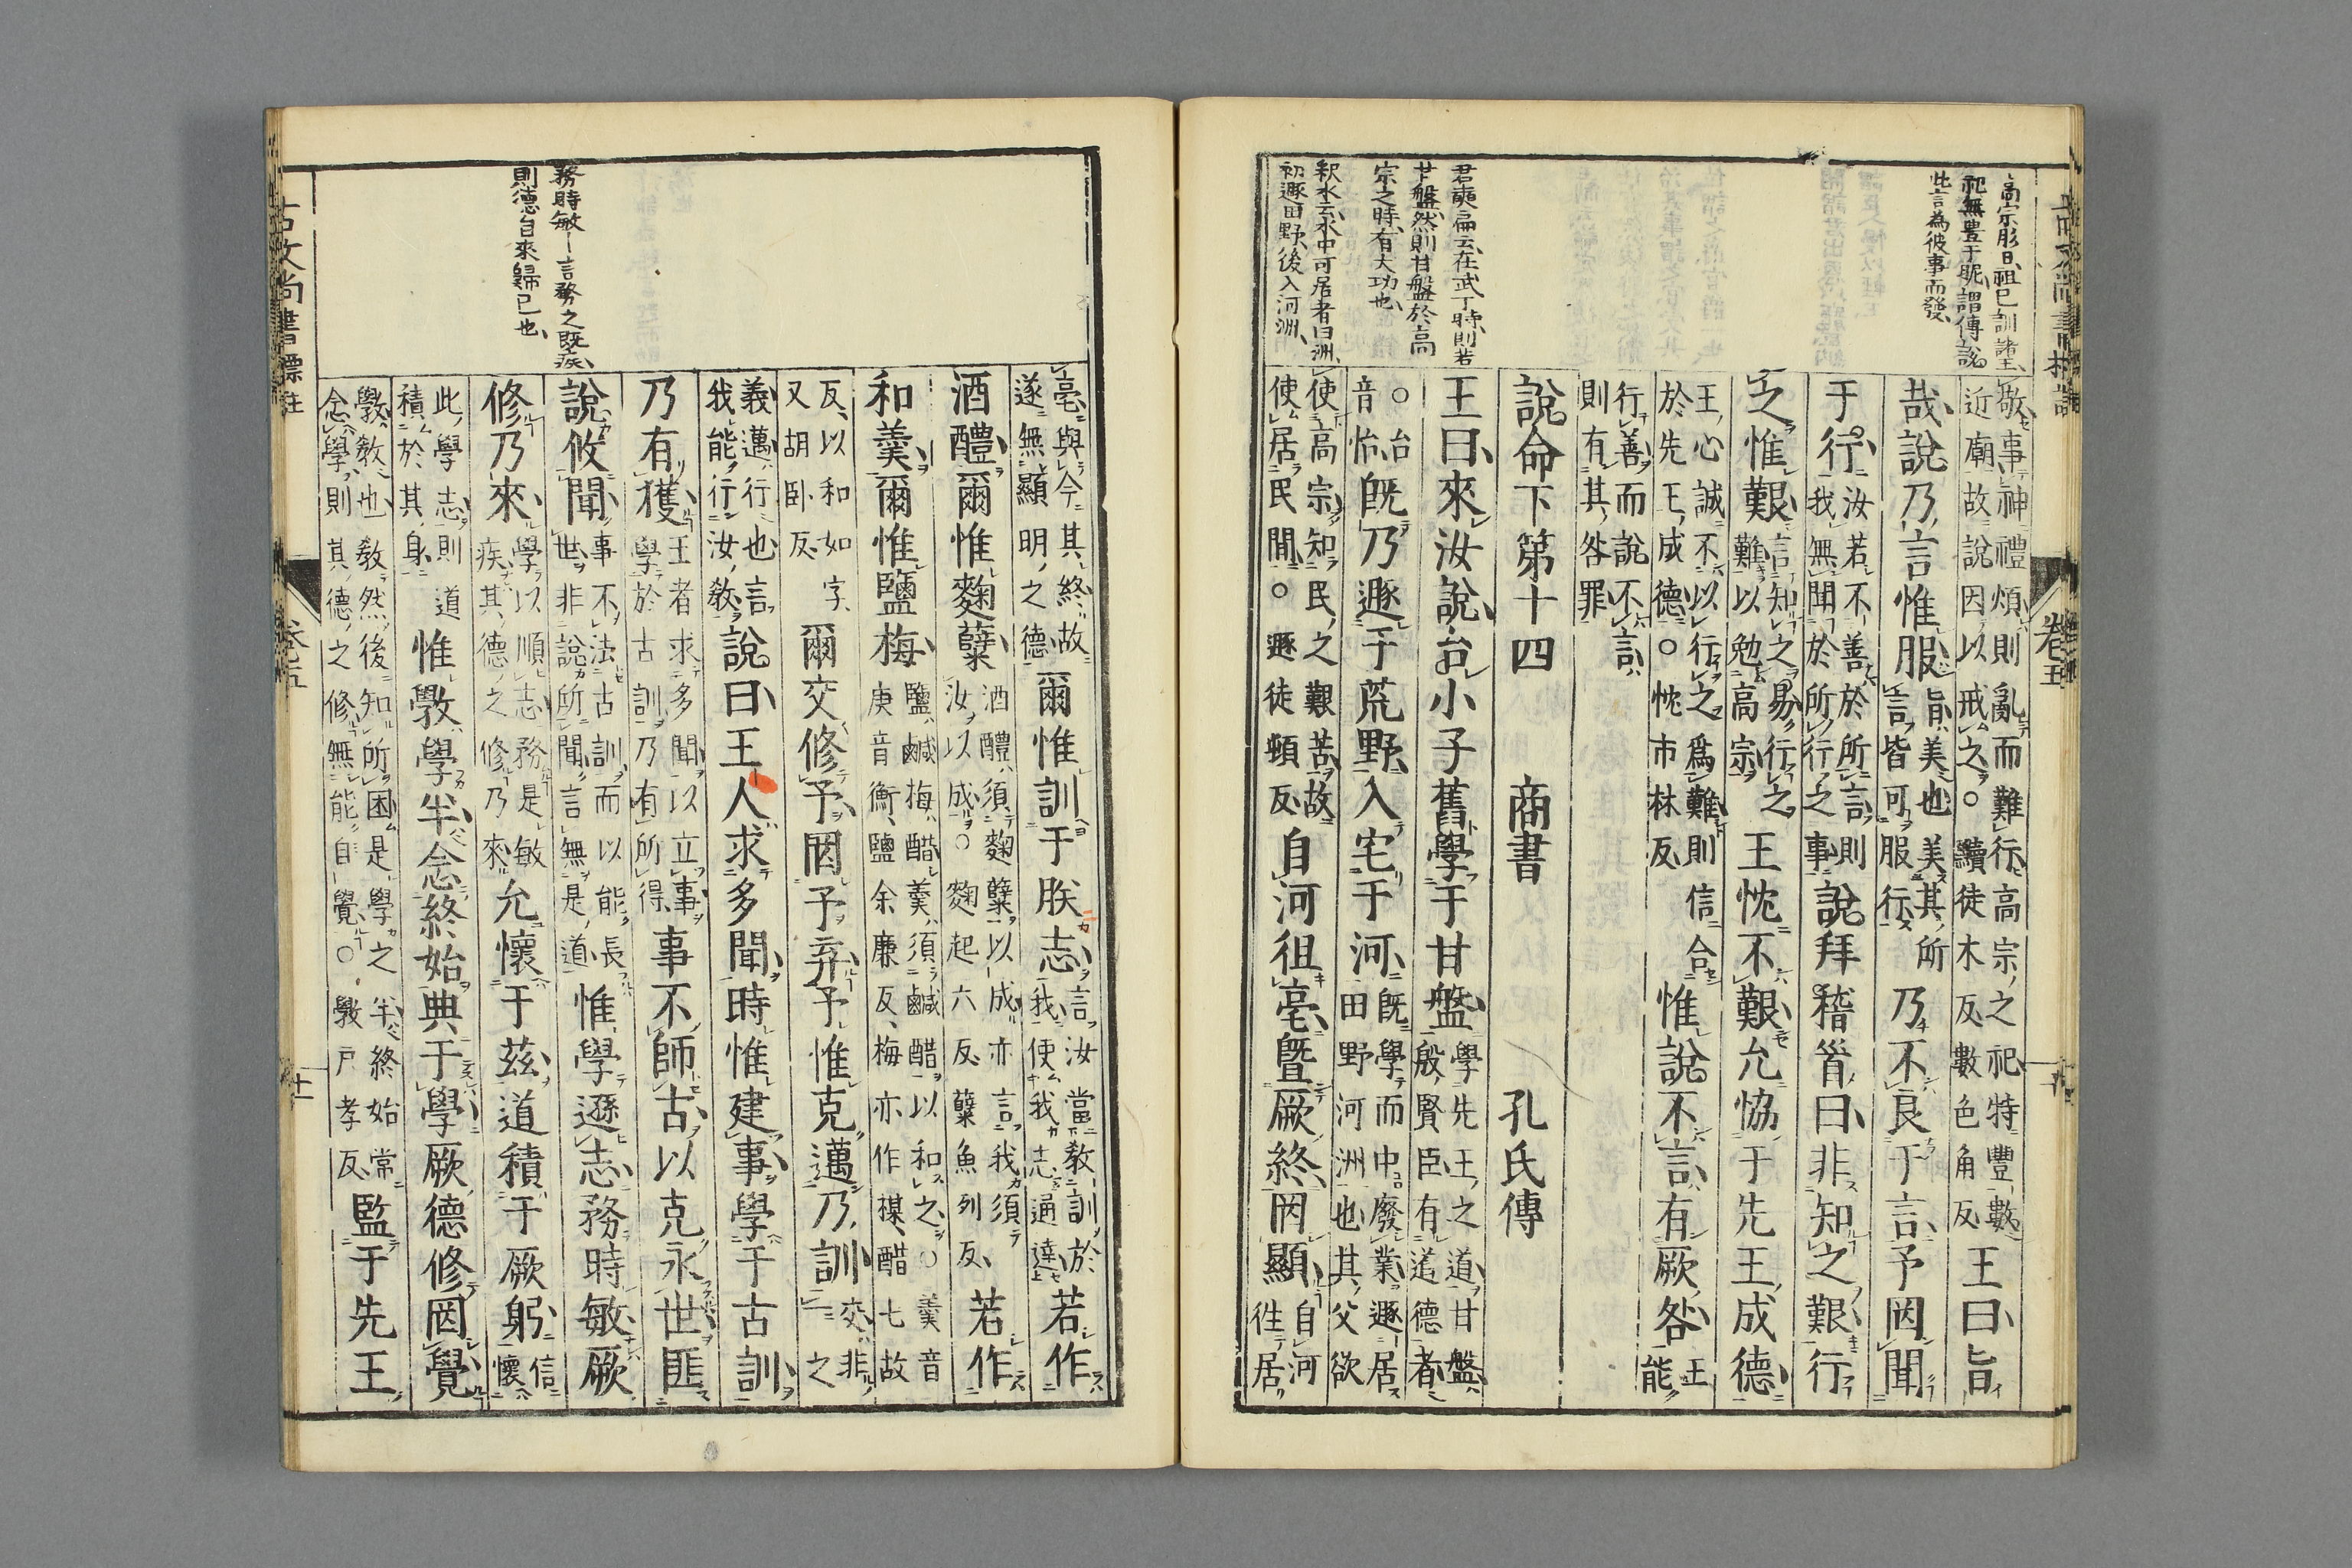 高宗肜日、祖已訓諸王、
祀無豊于昵、謂傳說
此言為彼事而發、
敬事神禮煩則亂而難行高宗之祀特豐數
近廟故說因以戒之○黷徒木反數色角反
王曰旨
哉說乃言惟服
旨美也美其所
言皆可服行
乃不良于言予罔聞
于行
汝若不善於所言則
我無聞於所行之事
說拜稽首曰非知之艱行
之惟艱
言知之易行之
難以勉高宗
王忱不艱允恊于先王成德
王心誠不以行之爲難則信合
於先王成德○忱市林反
惟說不言有厥咎
王能
行善而說不言
則有其咎罪
說命下第十四　商書　孔氏傳
君奭扁云、在武丁時、則若
甘盤、然則甘盤於高
宗之時、有大功也、
王曰來汝說台小子舊學于甘盤
學先王之道甘盤
殷賢臣有道德者
○台
音怡
旣乃遯于荒野入宅于河
旣學而中廢業遯居
田野河洲也其父欲
釈水云水中可居者曰洲、
初遯田野、後入河洲、
使高宗知民之艱苦故
使居民閒○遯徒頓反
自河徂亳曁厥終罔顯
自河
往居
亳與今其終故
遂無顯明之德
爾惟訓于朕志
言汝當教訓於
我使我志通達
若作
酒醴爾惟麴糱
酒醴須麴糱以成亦言我須
汝以成○麴起六反糱魚列反
若作
和羹爾惟鹽梅
鹽鹹梅醋羹須鹹醋以和之○羹音
庚音衡鹽余廉反梅亦作楳醋七故
反、以和如字、
又胡臥反
爾交修予罔予弃予惟克邁乃訓
交非之
義邁行也言
我能行汝教
說曰王人求多聞時惟建事學于古訓
乃有獲
王者求多聞以立事
學於古訓乃有所得
事不師古以克永世匪
說攸聞
事不法古訓而以能長
世非說所聞言無是道
惟學遜志務時敏厥
務時敏—言務之既疾、
則德自來歸已也、
修乃來
學以順志務是敏
疾其德之修乃來
允懷于茲道積于厥躬
信懷
此學志則道
積於其身
惟斅學半念終始典于學厥德修罔覺
斅教也教然後知所困是學之半終始常
念學則其德之修無能自覺○斅戸孝反
監于先王